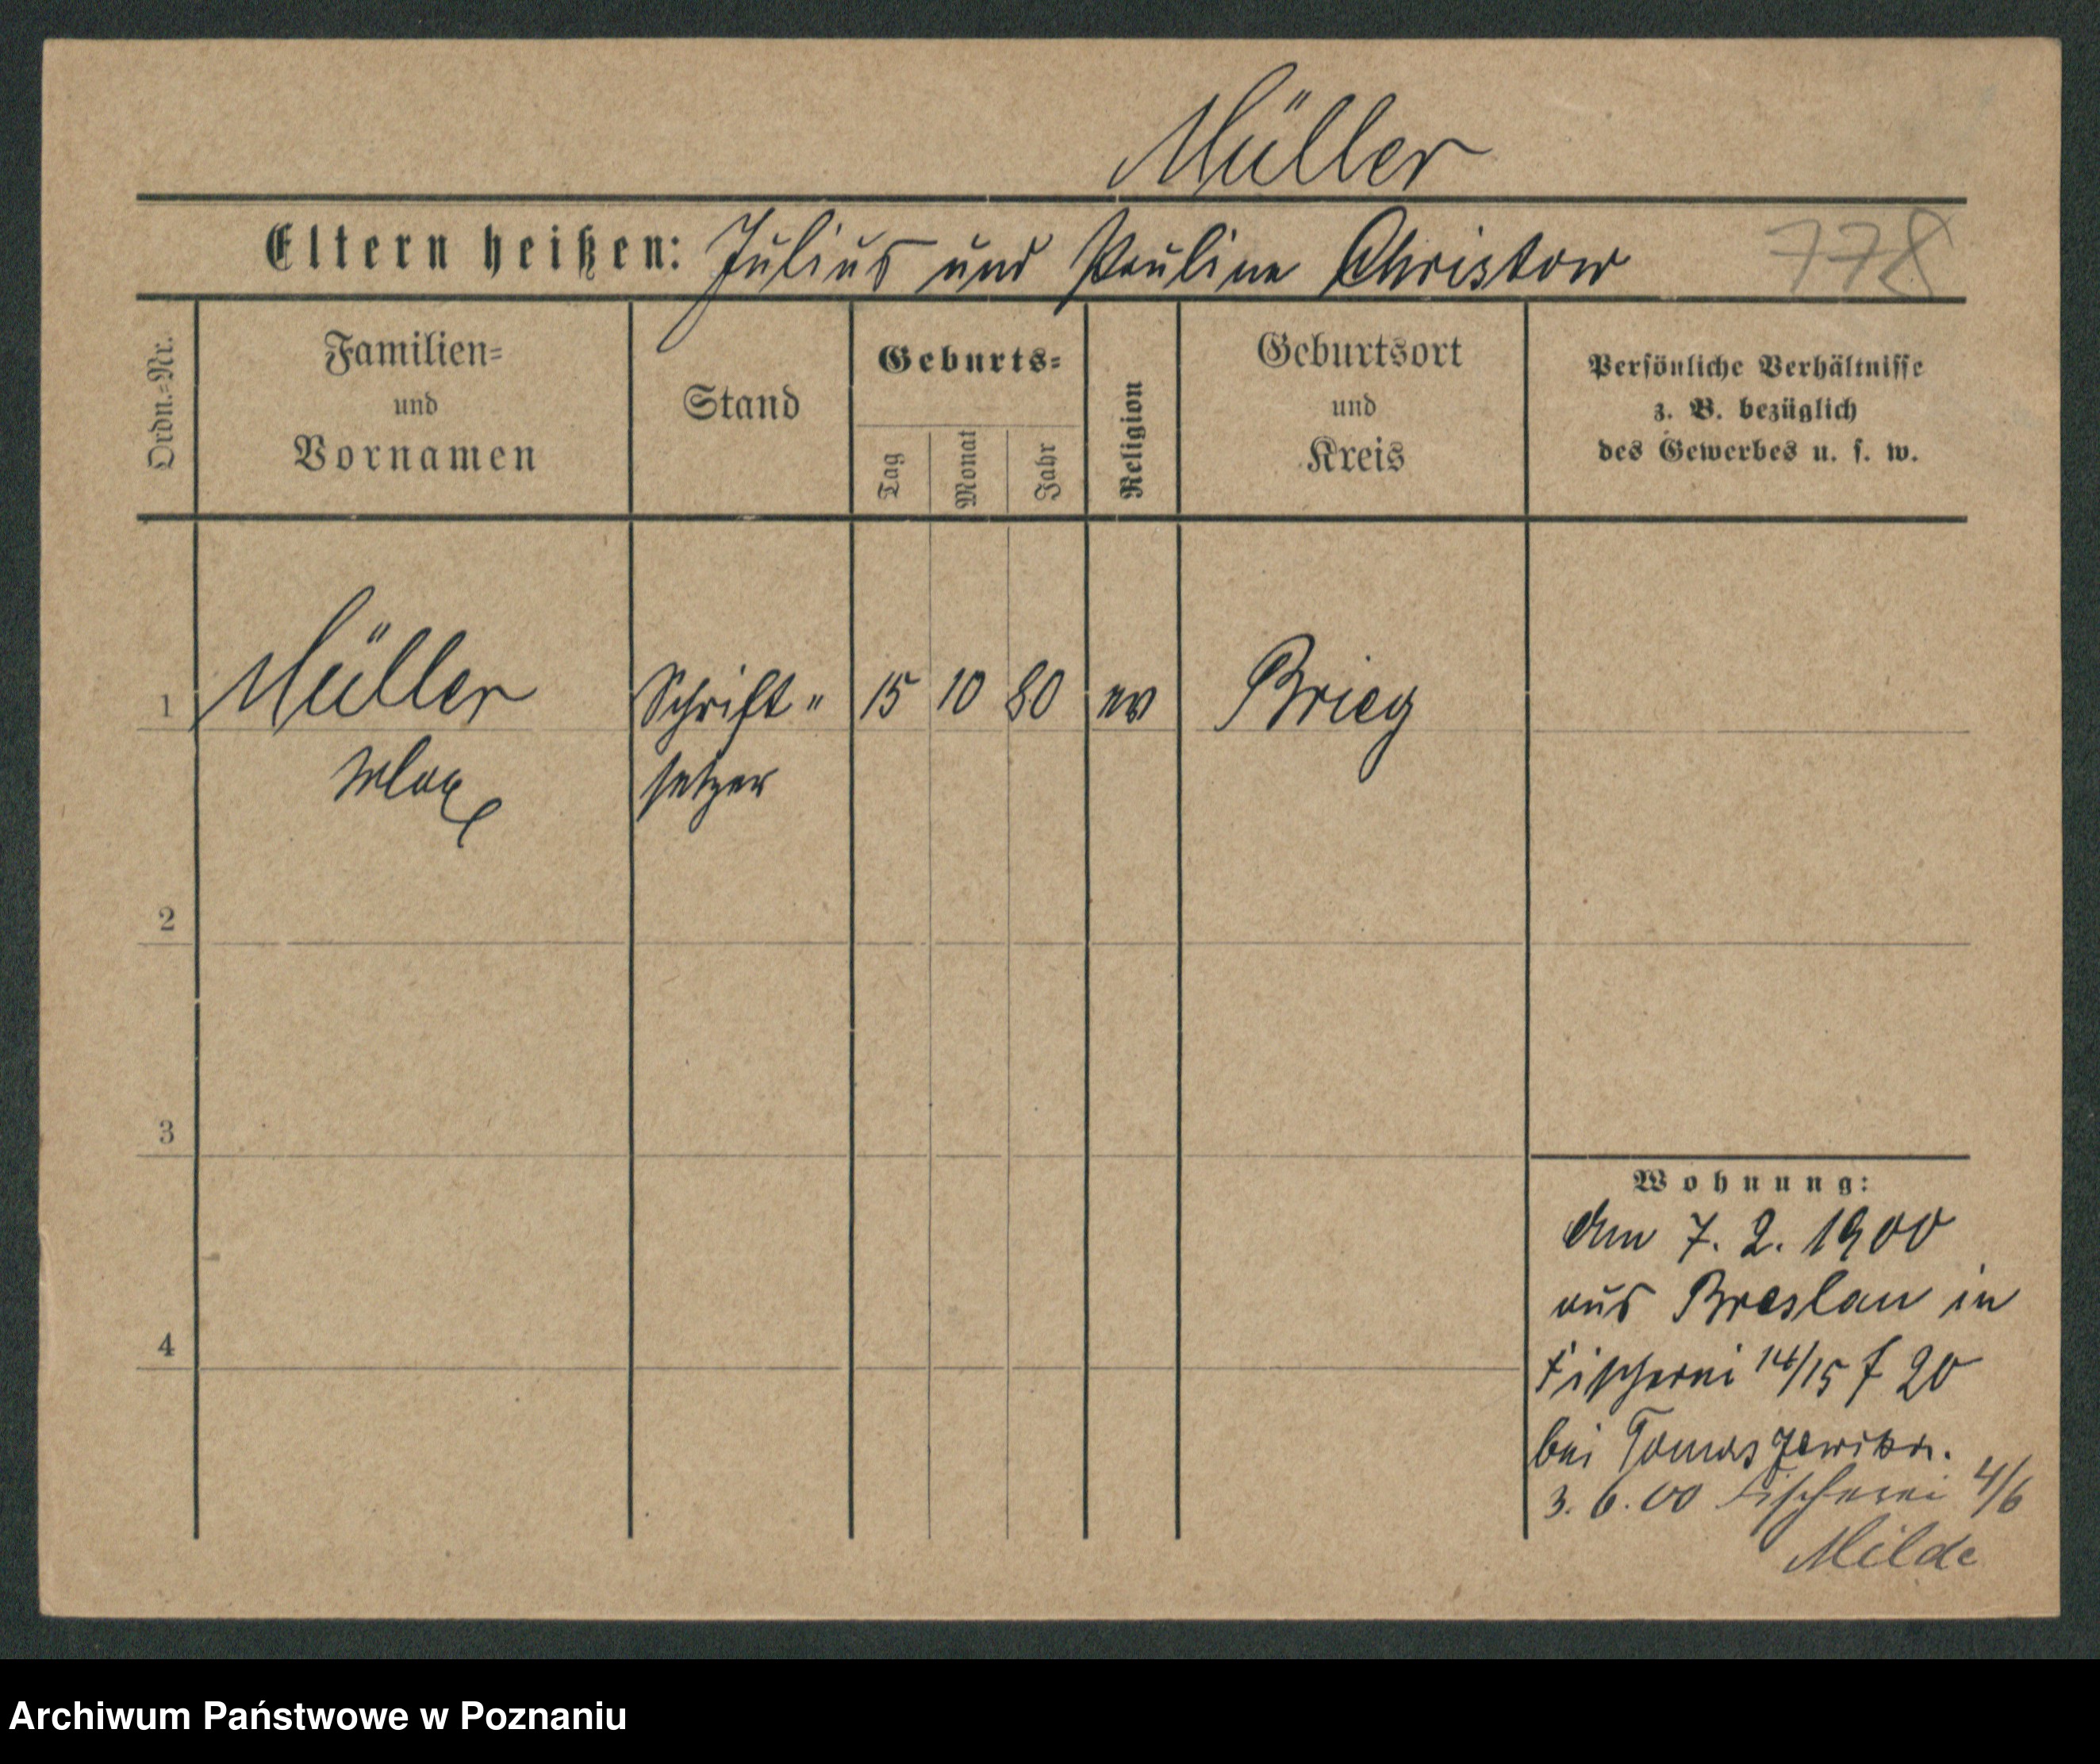 Müller
Eltern heißen: Julius und Pauline Christow 778
Ordn.=Nr.
Familien=
und
Vornamen
Stand
Geburts=
Tag
Monat
Jahr
Religion
Geburtsort
und
Kreis
Persönliche Verhältnisse
z. B. bezüglich
des Gewerbes u. s. w.
1 Müller Schrift= 15 10 80 ev Brieg
Max setzer
2
3
4
Wohnung:
Am 7. 2. 1900
aus Breslau in
Fischerei 14/15 f 20
bei
3. 6. 00 Fischerei 4/6
Milde
Archiwum Państwowe w Poznaniu